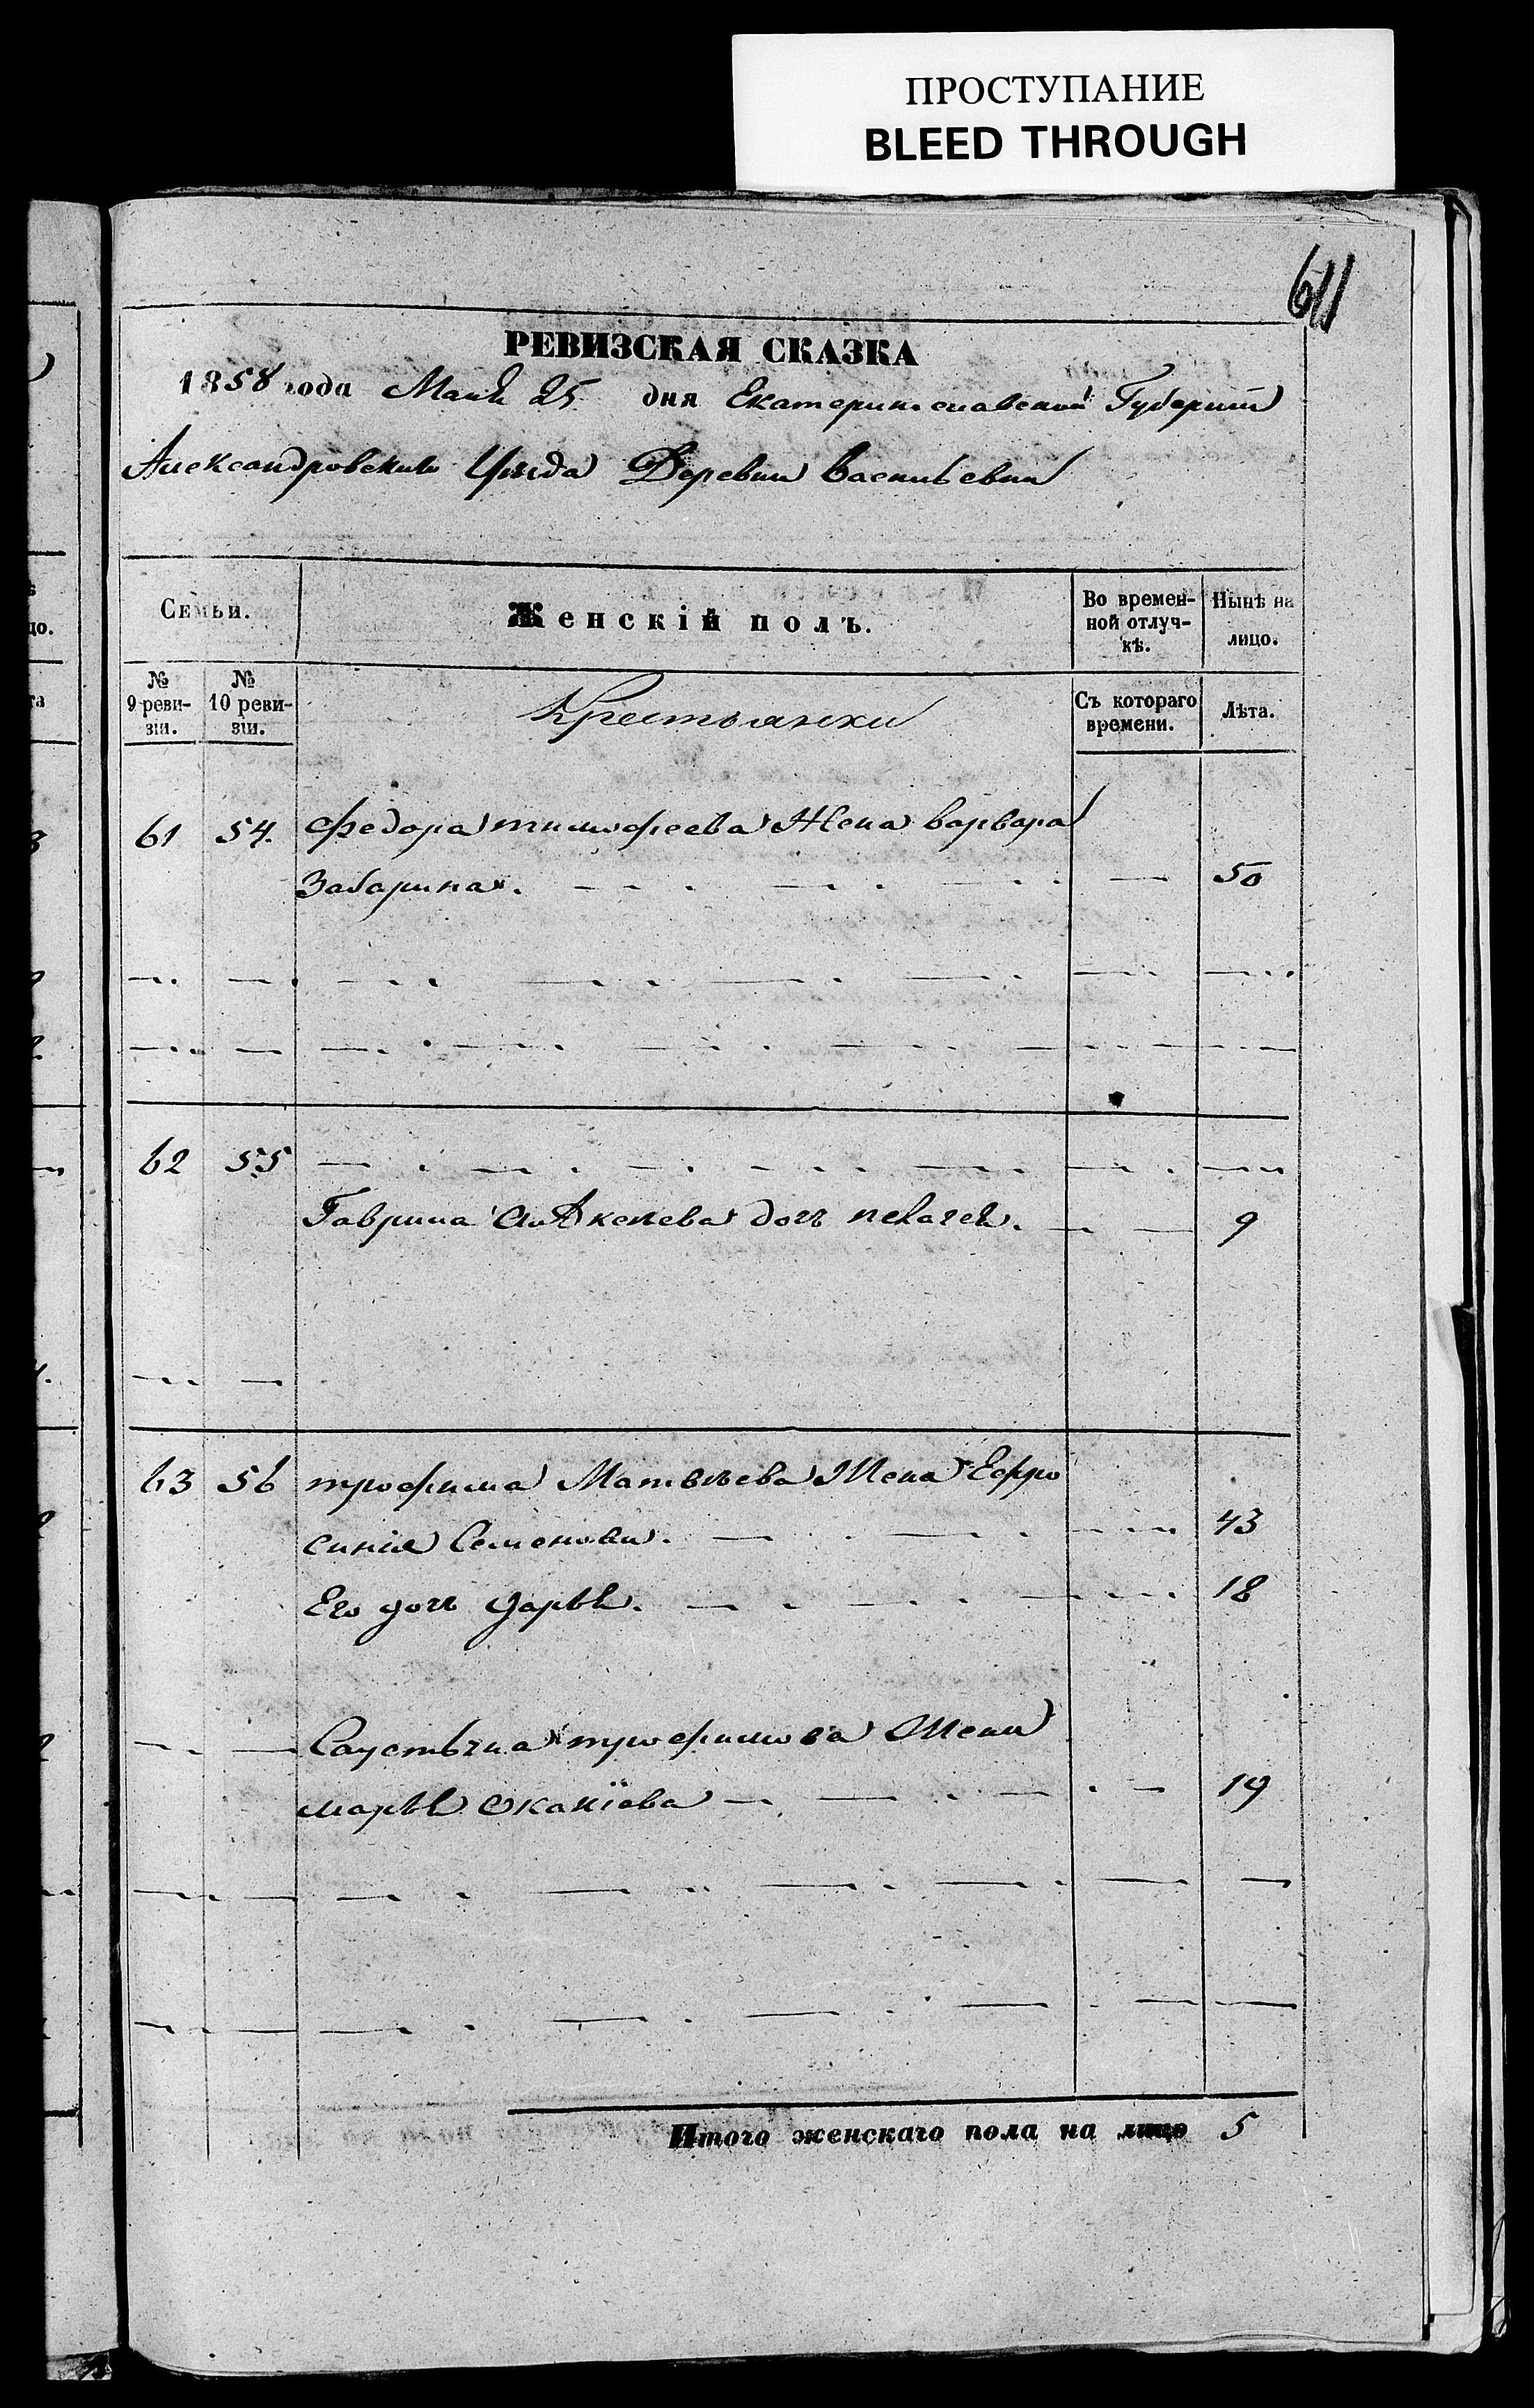 ПРОСТУПАНИЕ
BLEED THROUGH
611
РЕВИЗСКАЯ СКАЗКА
1858 года Маия 25 дня Екатеринославской Губернии
Александровскаго Уезда Деревни Васильевки
Семьи. Женскій полъ. Во времен-ной отлуч-кѣ. Нынѣ на лицо.
№ 9 реви-зіи. № 10 реви-зіи. Крестьянки Съ котораго времени. Лѣта.
61 54. Федора тимофеева Жена варвара
Захарина. 50
62 55
Гаврила дочь пелагея. 9
63 56 трофима Матвѣева Жена Ефро
синия Семенова. 43
Его дочь дарья. 18
трофимова Жена
марья 19
Итого женскаго пола на лицо 5